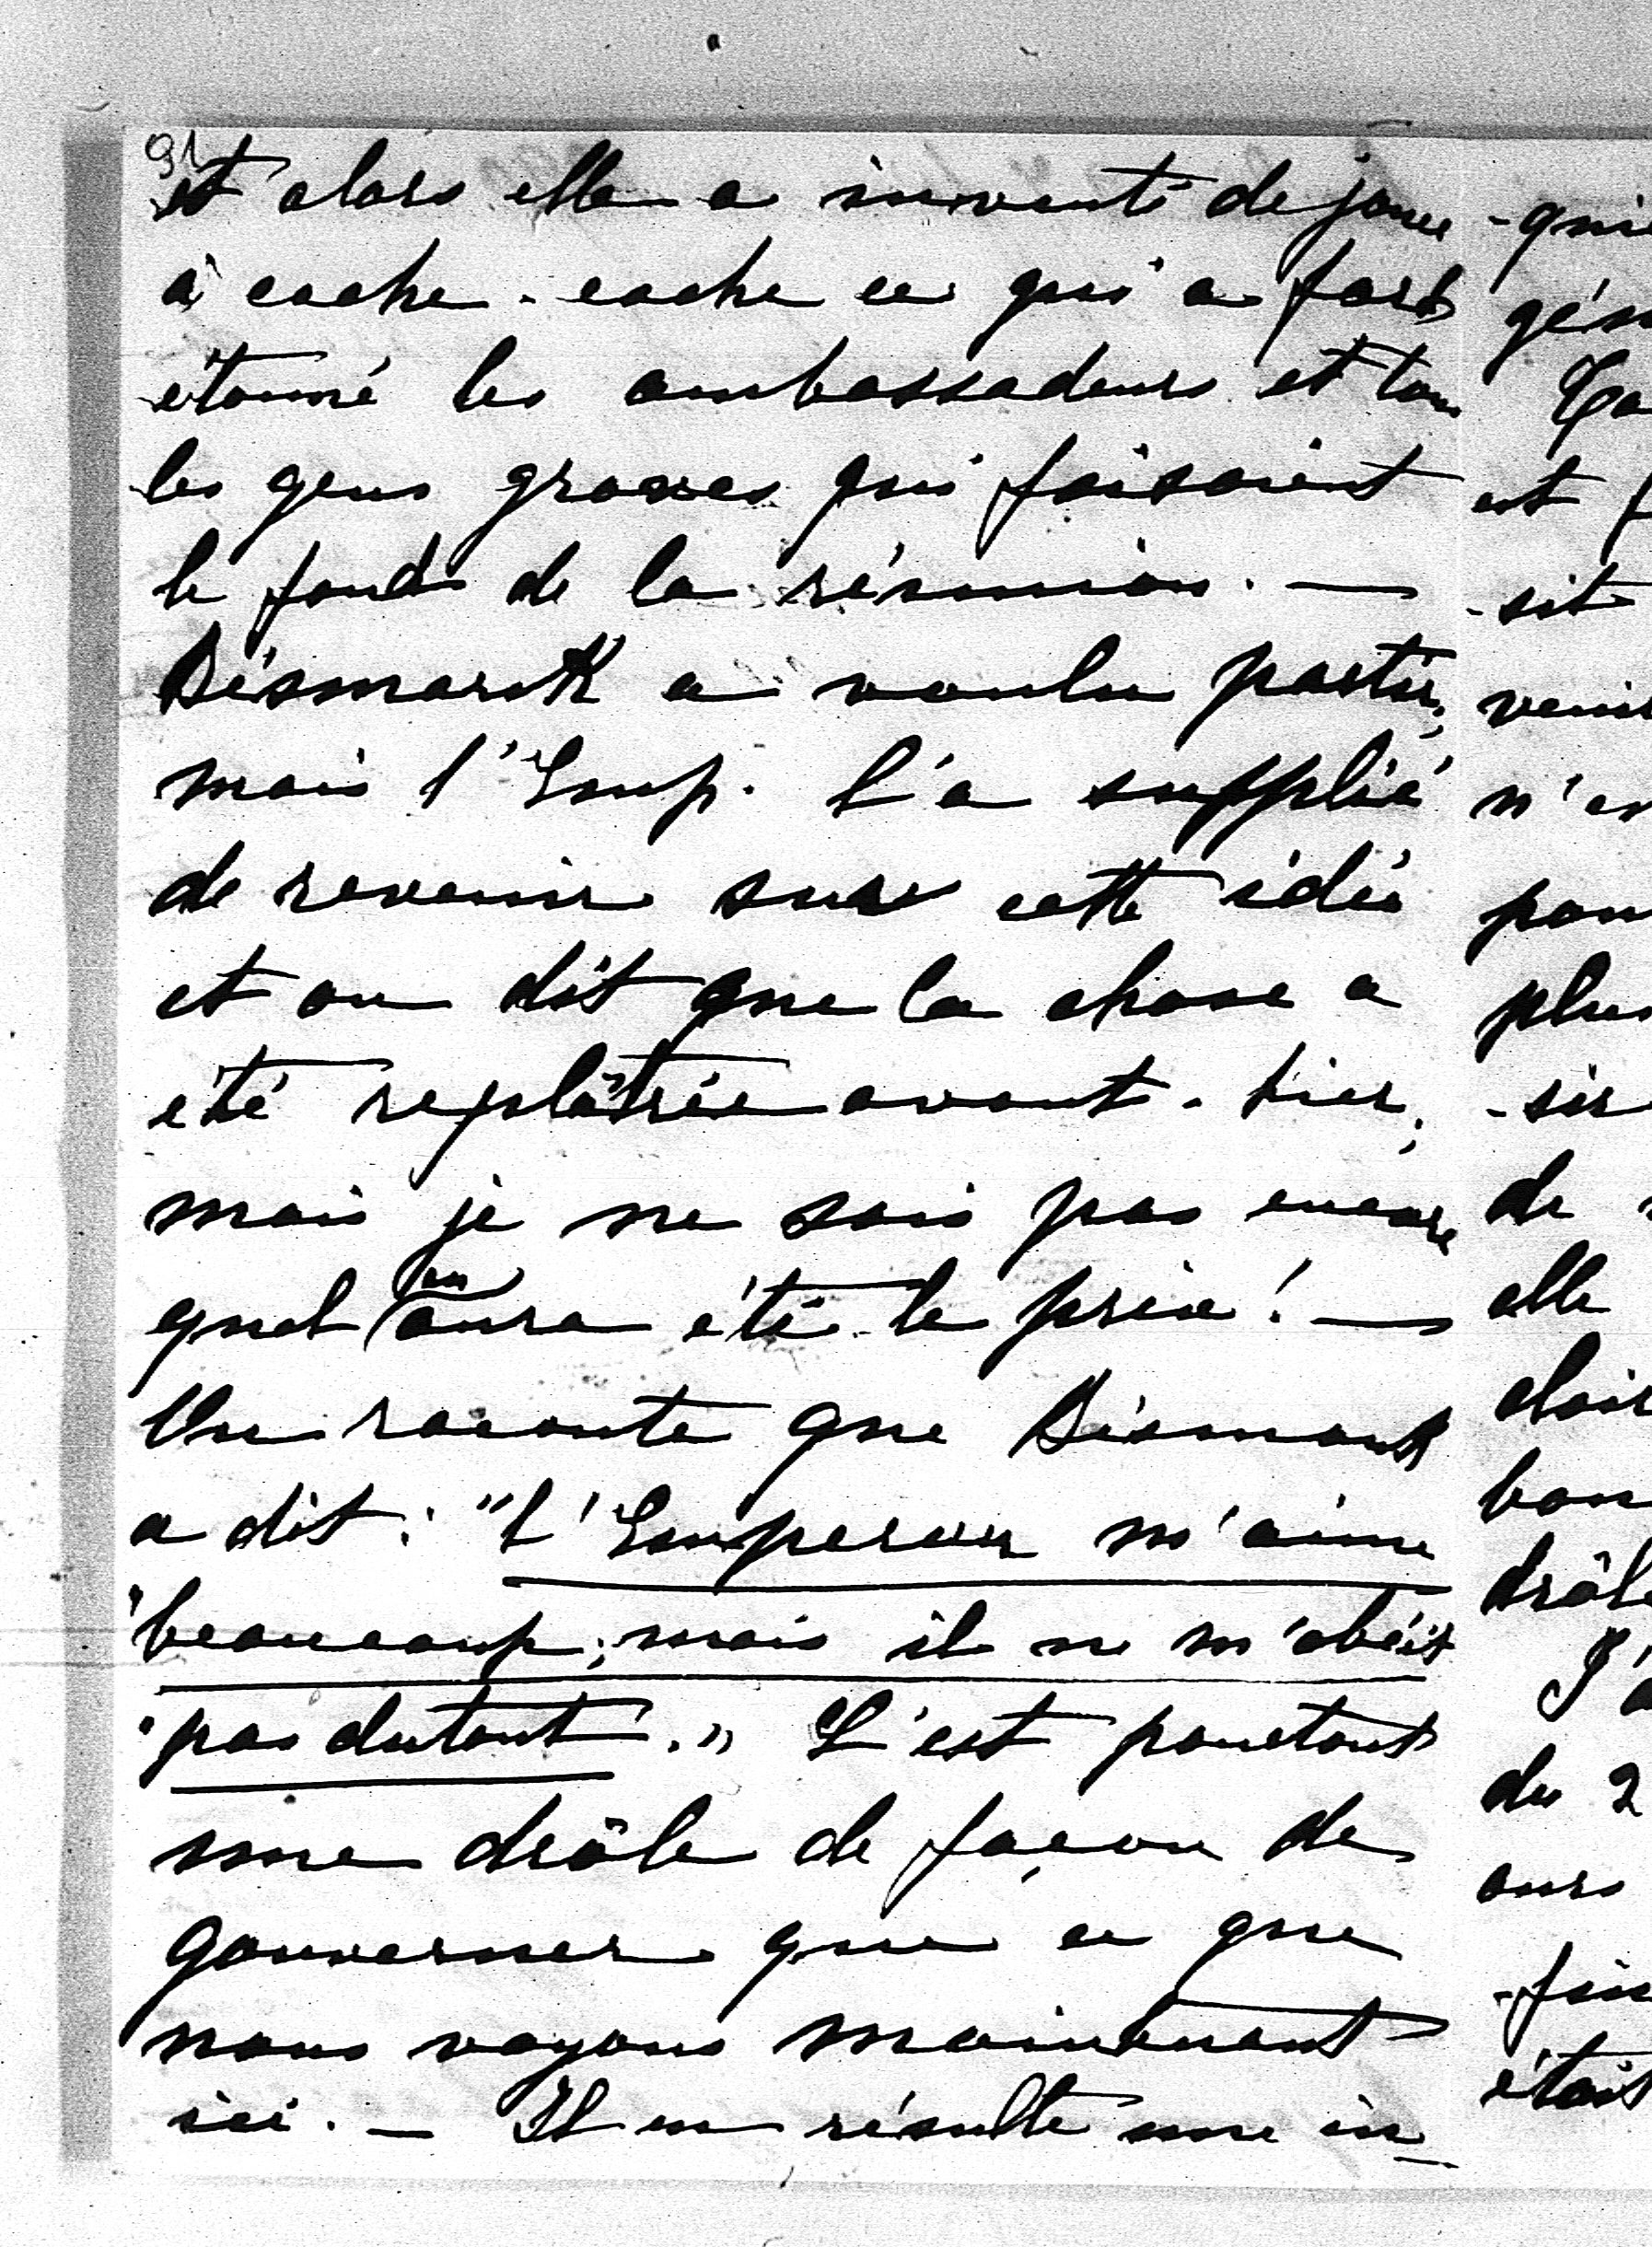 91
et alors elle a inventé de jouer
à cache-cache ce qui a fort
étonné les ambassadeurs et tous
les gens graves qui faisaient
le fond de la réunion. —
Bismarck a voulu partir;
mais l'Emp. l'a supplié
de revenir sur cette idée
et on dit que la chose a
été replâtrée avant-hier;
mais je ne sais pas encore
quel en
aura été le prix! —
On raconte que Bismark
a dit: "l'Empereur m'aime
"beaucoup; mais il ne m'obéit
"pas dutout." C'est pourtant
une drôle de façon de
gouverner que ce que
nous voyons maintenant
ici. — Il en résulte une in-
-qui
est
-sit
venir
n'en
plus
-sir
de
elle
drôle
J'a
du 2
ours
était